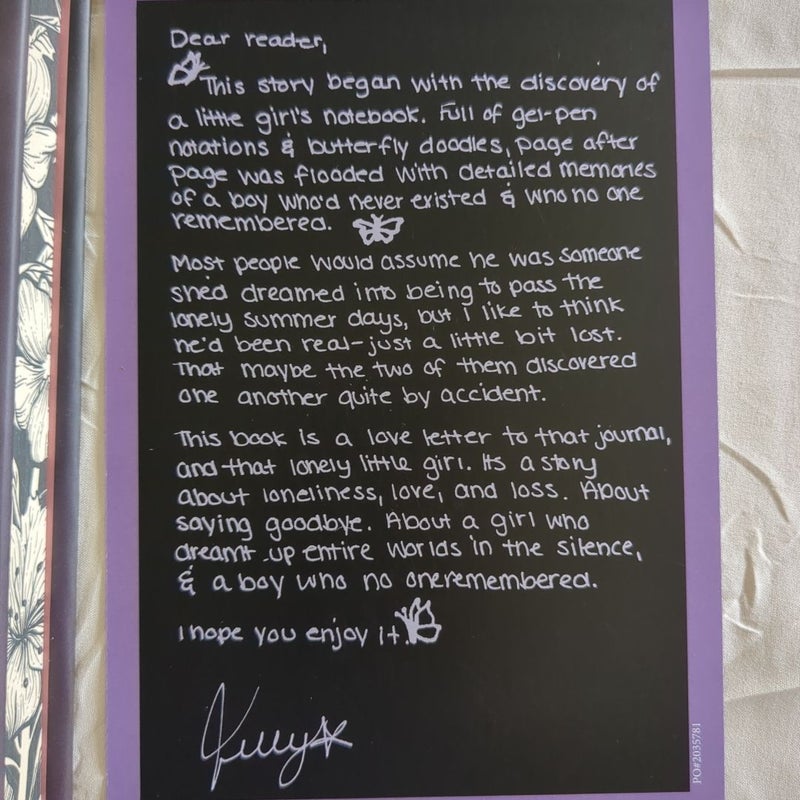 Dear reader,
This story began with the discovery of
a little girl's notebook. Full of gel-pen
notations & butterfly doodles, page after
page was flooded with detailed memories
of a boy who'd never existed & who no one
remembered.
Most people would assume he was someone
she'd dreamed into being to pass the
lonely summer days, but I like to think
he'd been real-just a little bit lost.
That maybe the two of them discovered
one another quite by accident.
This book is a love letter to that journal,
and that lonely little girl. Its a story
about loneliness, love, and loss. About
saying goodbye. About a girl who
dreamt up entire worlds in the silence,
& a boy who no one remembered.
I hope you enjoy it.
Kelly
PO#2035781